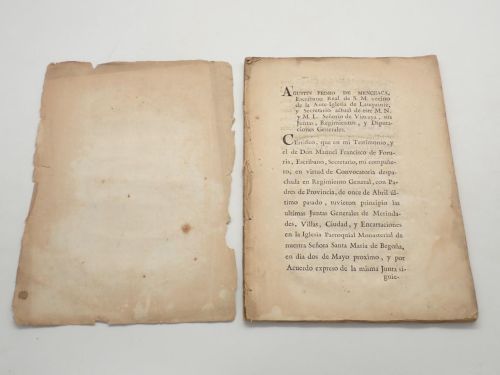 AGUSTIN PEDRO DE MENCHACA,
Escribano Real de S. M. vecino
de la Ante-Iglesia de
y Secretario actual de este M. N.
y M. L. Señorío de Vizcaya, sus
Juntas, Regimientos, y Diputa-
ciones Generales.
CErtifico, que en mi Testimonio, y
el de Don Manuel Francisco de Foru-
ria, Escribano, Secretario, mi compañe-
ro, en virtud de Convocatoria despa-
chada en Regimiento General, con Pa-
dres de Provincia, de once de Abril úl-
timo pasado, tuvieron principio las
ultimas Juntas Generales de Merinda-
des, Villas, Ciudad, y Encartaciones
en la Iglesia Parroquial Monasterial de
nuestra Señora Santa Maria de Begoña,
en dia dos de Mayo proximo, y por
Acuerdo expreso de la misma Junta si-
guie-